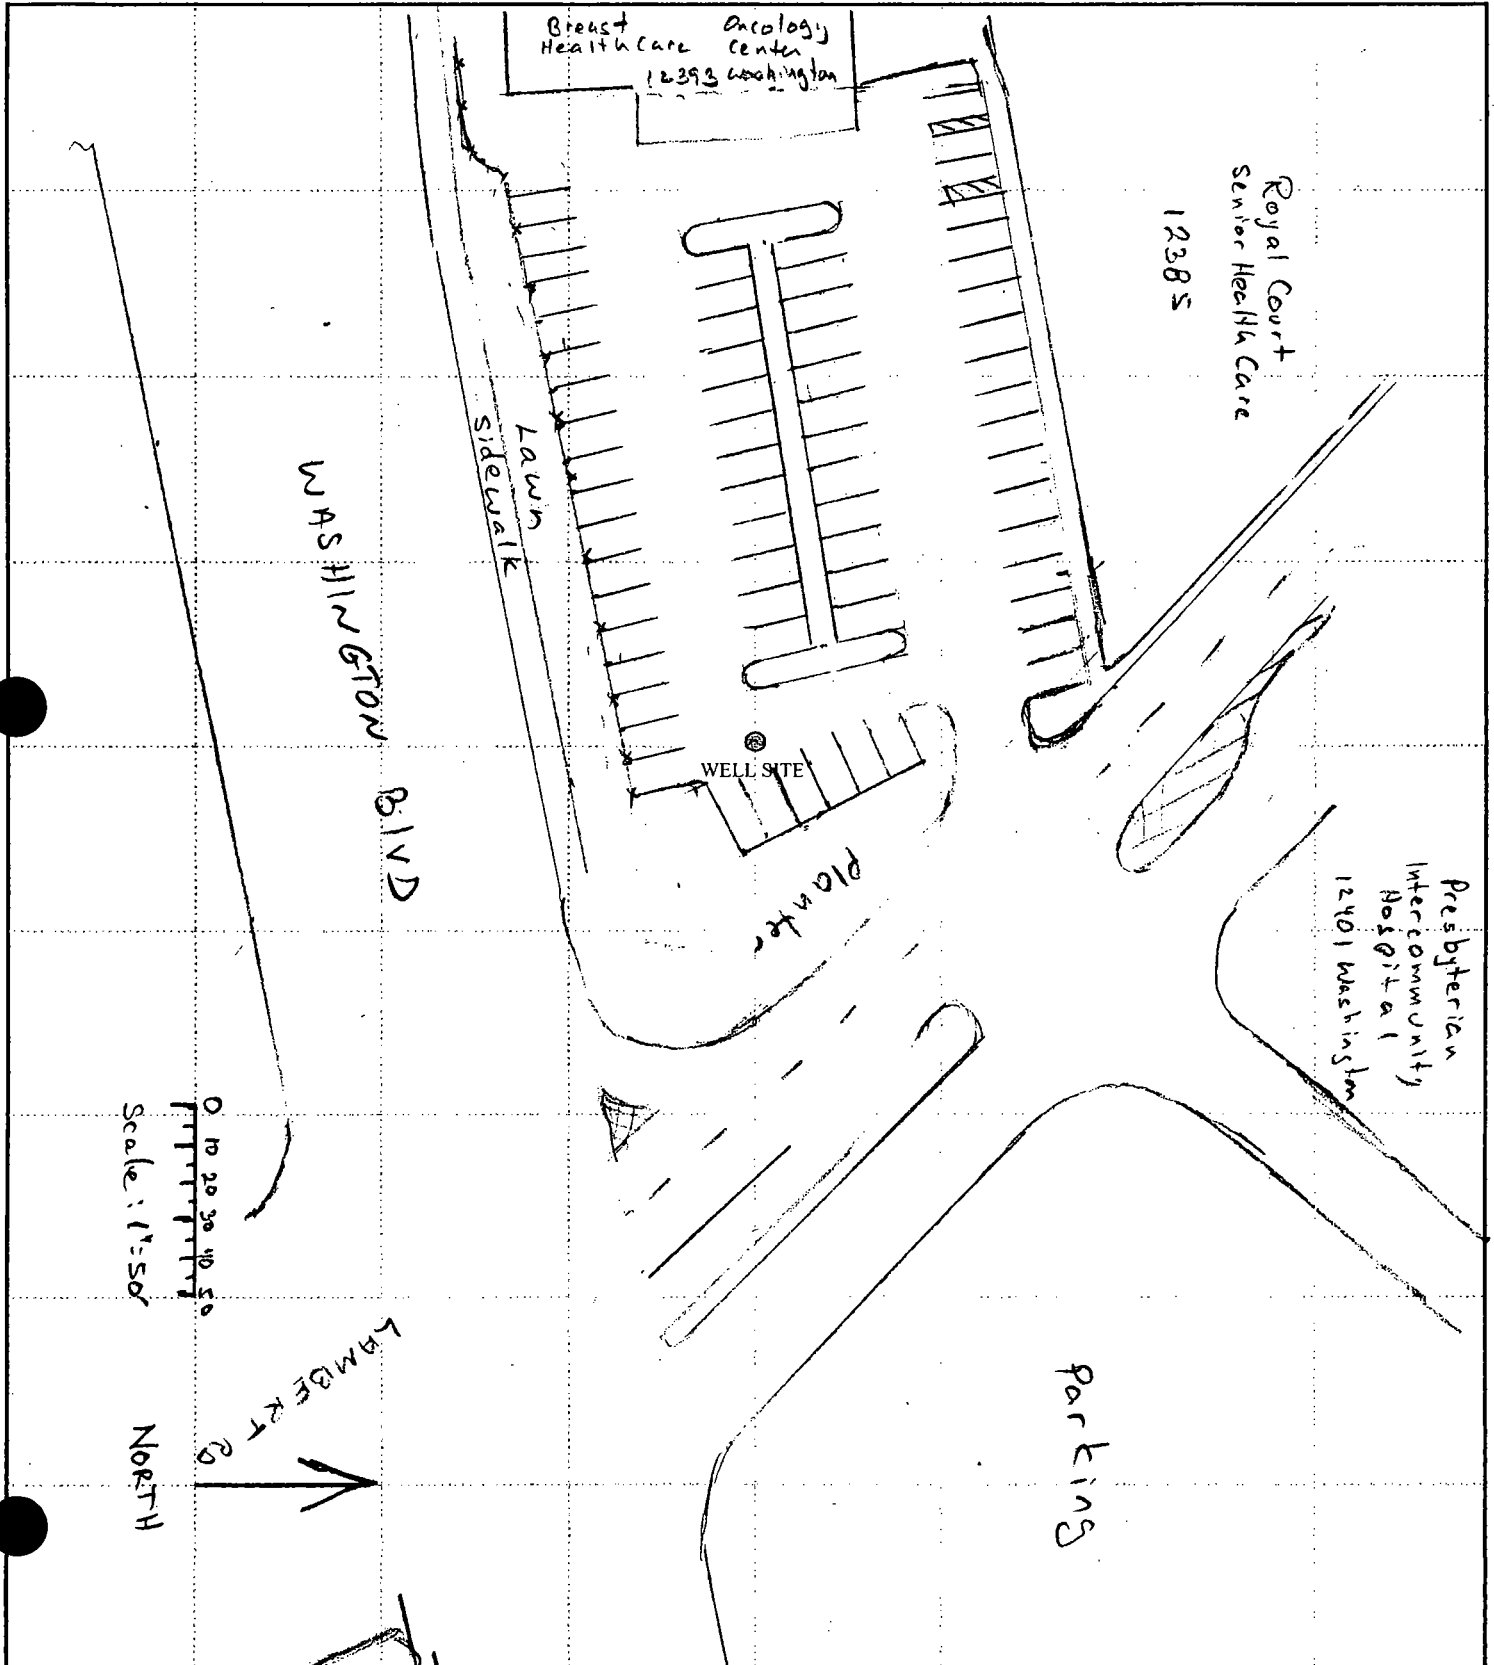 Breast Oncology
Health Care Center
12393 Washington
Royal Court
Senior Health Care
12385
Lawn
Sidewalk
WASHINGTON BlVD
WELL SITE
Planter
Presbyterian
Intercommunity
Hospital
12401 Washington
0 10 20 30 40 50
Scale: 1"=50'
LAMBERT RD
NORTH
Parking